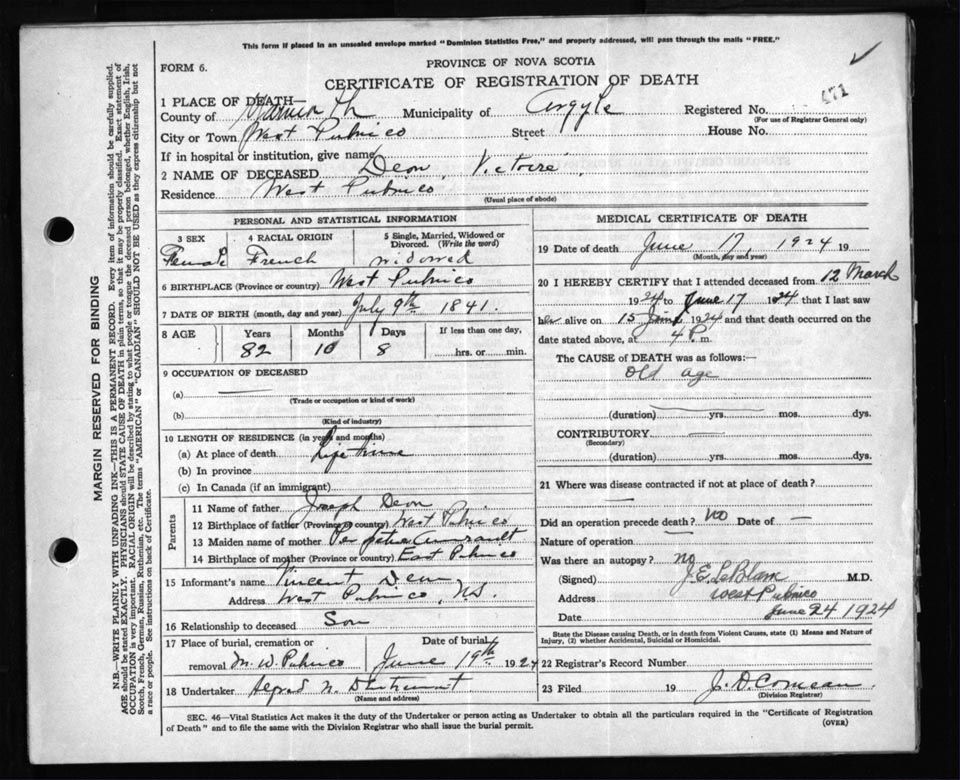 This form if placed in an unsealed envelope marked "Dominion Statistics Free," and properly addressed, will pass through the mails "FREE."
FORM 6.
PROVINCE OF NOVA SCOTIA
CERTIFICATE OF REGISTRATION OF DEATH
471
1 PLACE OF DEATH—
County of Yarmouth Municipality of Argyle Registered No.
(For use of Registrar General only)
City or Town West Pubnico Street House No.
If in hospital or institution, give name
2 NAME OF DECEASED Deon, Victoire
Residence West Pubnico
(Usual place of abode)
PERSONAL AND STATISTICAL INFORMATION
3 SEX 4 RACIAL ORIGIN 5 Single, Married, Widowed or Divorced. (Write the word)
Female French widowed
6 BIRTHPLACE (Province or country) West Pubnico
7 DATE OF BIRTH (month, day and year) July 9th 1841.
8 AGE Years Months Days If less than one day,
82 10 8 hrs. or min.
9 OCCUPATION OF DECEASED
(a)
(Trade or occupation or kind of work)
(b)
(Kind of industry)
10 LENGTH OF RESIDENCE (in years and months)
(a) At place of death Life time
(b) In province
(c) In Canada (if an immigrant)
Parents
11 Name of father Joseph Deon
12 Birthplace of father (Province or country) West Pubnico
13 Maiden name of mother
14 Birthplace of mother (Province or country) East Pubnico
15 Informant's name Vincent Deon
Address West Pubnico, N.S.
16 Relationship to deceased Son
17 Place of burial, cremation or Date of burial
removal M. W. Pubnico June 19th 1924
18 Undertaker Alfred N.
(Name and address)
MEDICAL CERTIFICATE OF DEATH
19 Date of death June 17, 1924 19
(Month, day and year)
20 I HEREBY CERTIFY that I attended deceased from 12 March
1924 to June 17 1924 that I last saw
her alive on 15 June 1924 and that death occurred on the
date stated above, at 4 P. m.
The CAUSE of DEATH was as follows:—
Old age
(duration) yrs. mos. dys.
CONTRIBUTORY
(Secondary)
(duration) yrs. mos. dys.
21 Where was disease contracted if not at place of death?
Did an operation precede death? No Date of —
Nature of operation
Was there an autopsy? no
(Signed) J. E. LeBlanc M.D.
Address West Pubnico
Date June 24 1924
State the Disease causing Death, or in death from Violent Causes, state (1) Means and Nature of
Injury, (2) whether Accidental, Suicidal or Homicidal.
22 Registrar's Record Number
23 Filed 19 J. D. Comeau
(Division Registrar)
SEC. 46—Vital Statistics Act makes it the duty of the Undertaker or person acting as Undertaker to obtain all the particulars required in the "Certificate of Registration
of Death" and to file the same with the Division Registrar who shall issue the burial permit.
(OVER)
MARGIN RESERVED FOR BINDING
N.B.—WRITE PLAINLY WITH UNFADING INK—THIS IS A PERMANENT RECORD. Every item of information should be carefully supplied.
AGE should be stated EXACTLY. PHYSICIANS should STATE CAUSE OF DEATH in plain terms, so that it may be properly classified. Exact statement of
OCCUPATION is very important. RACIAL ORIGIN will be described by stating to what people or tongue the deceased person belonged, whether English, Irish,
Scotch, French, German, Russian, Ruthenian, etc. The terms "AMERICAN" or "CANADIAN" SHOULD NOT BE USED as they express citizenship but not
a race or people. See instructions on back of Certificate.